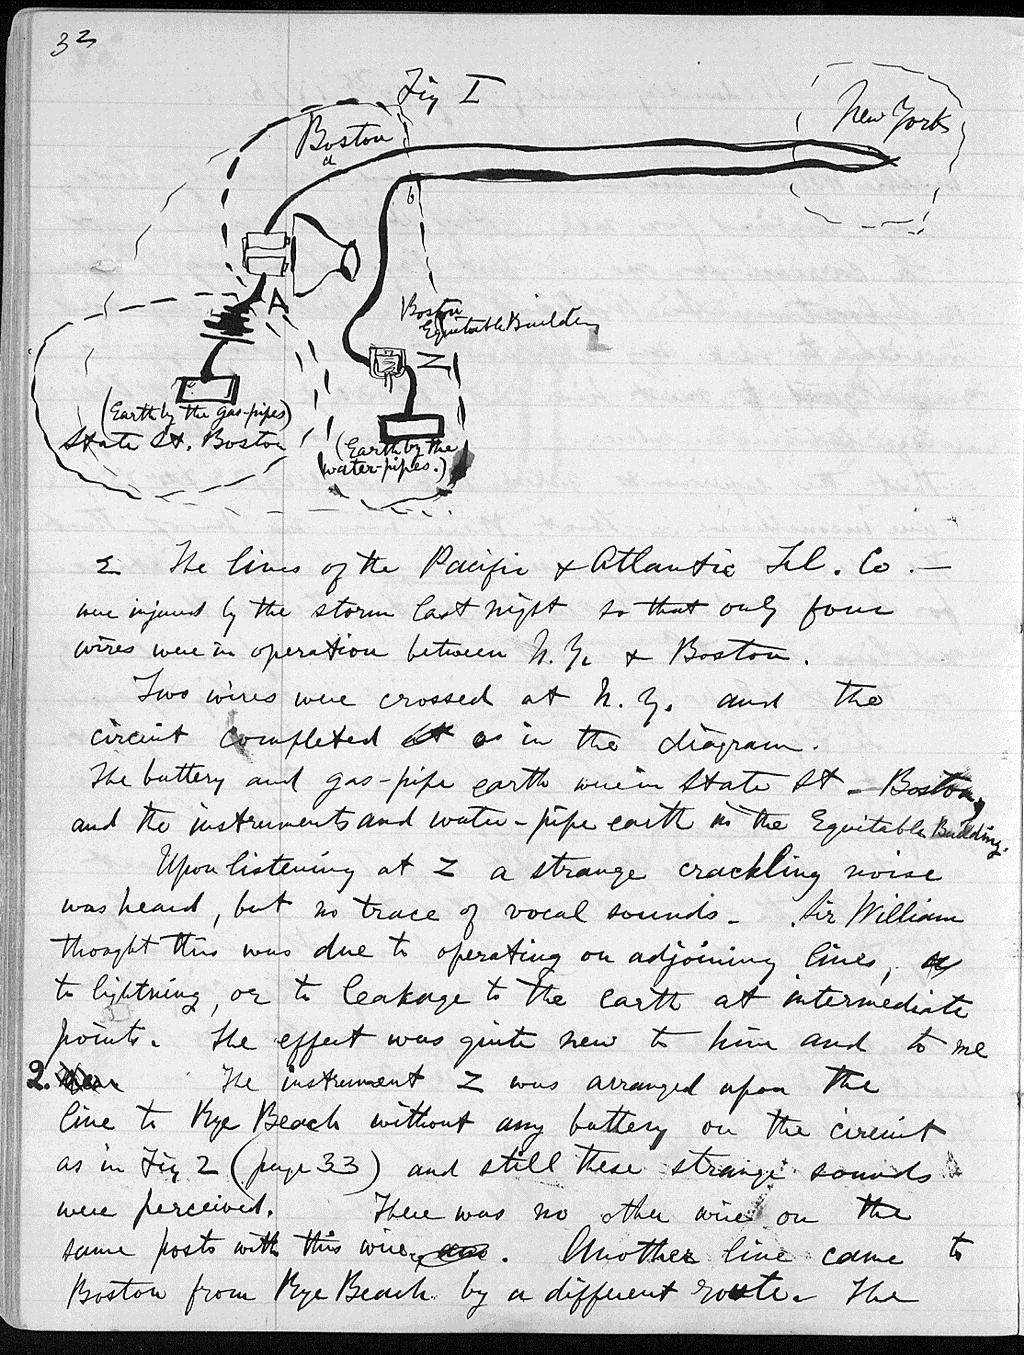 32
Fig I
Boston
a
New York
b
A
Boston
Equitable Building
Z
(Earth by the gas-pipes)
State St. Boston
(Earth by the
water-pipes.)
The lines of the Pacific & Atlantic Tel. Co. —
were injured by the storm last night so that only four
wires were in operation between N.Y. & Boston.
Two wires were crossed at N.Y. and the
circuit completed as in the diagram.
The battery and gas-pipe earth were in State St. Boston,
and the instruments and water-pipe earth in the Equitable Building.
Upon listening at Z a strange crackling noise
was heard, but no trace of vocal sounds. Sir William
thought this was due to operating on adjoining lines,
to lightning, or to leakage to the earth at intermediate
points. The effect was quite new to him and to me
2. The instrument Z was arranged upon the
line to Rye Beach without any battery on the circuit
as in Fig 2 (page 33) and still these strange sounds
were perceived. There was no other wire on the
same posts with this wire. Another line came to
Boston from Rye Beach by a different route. The